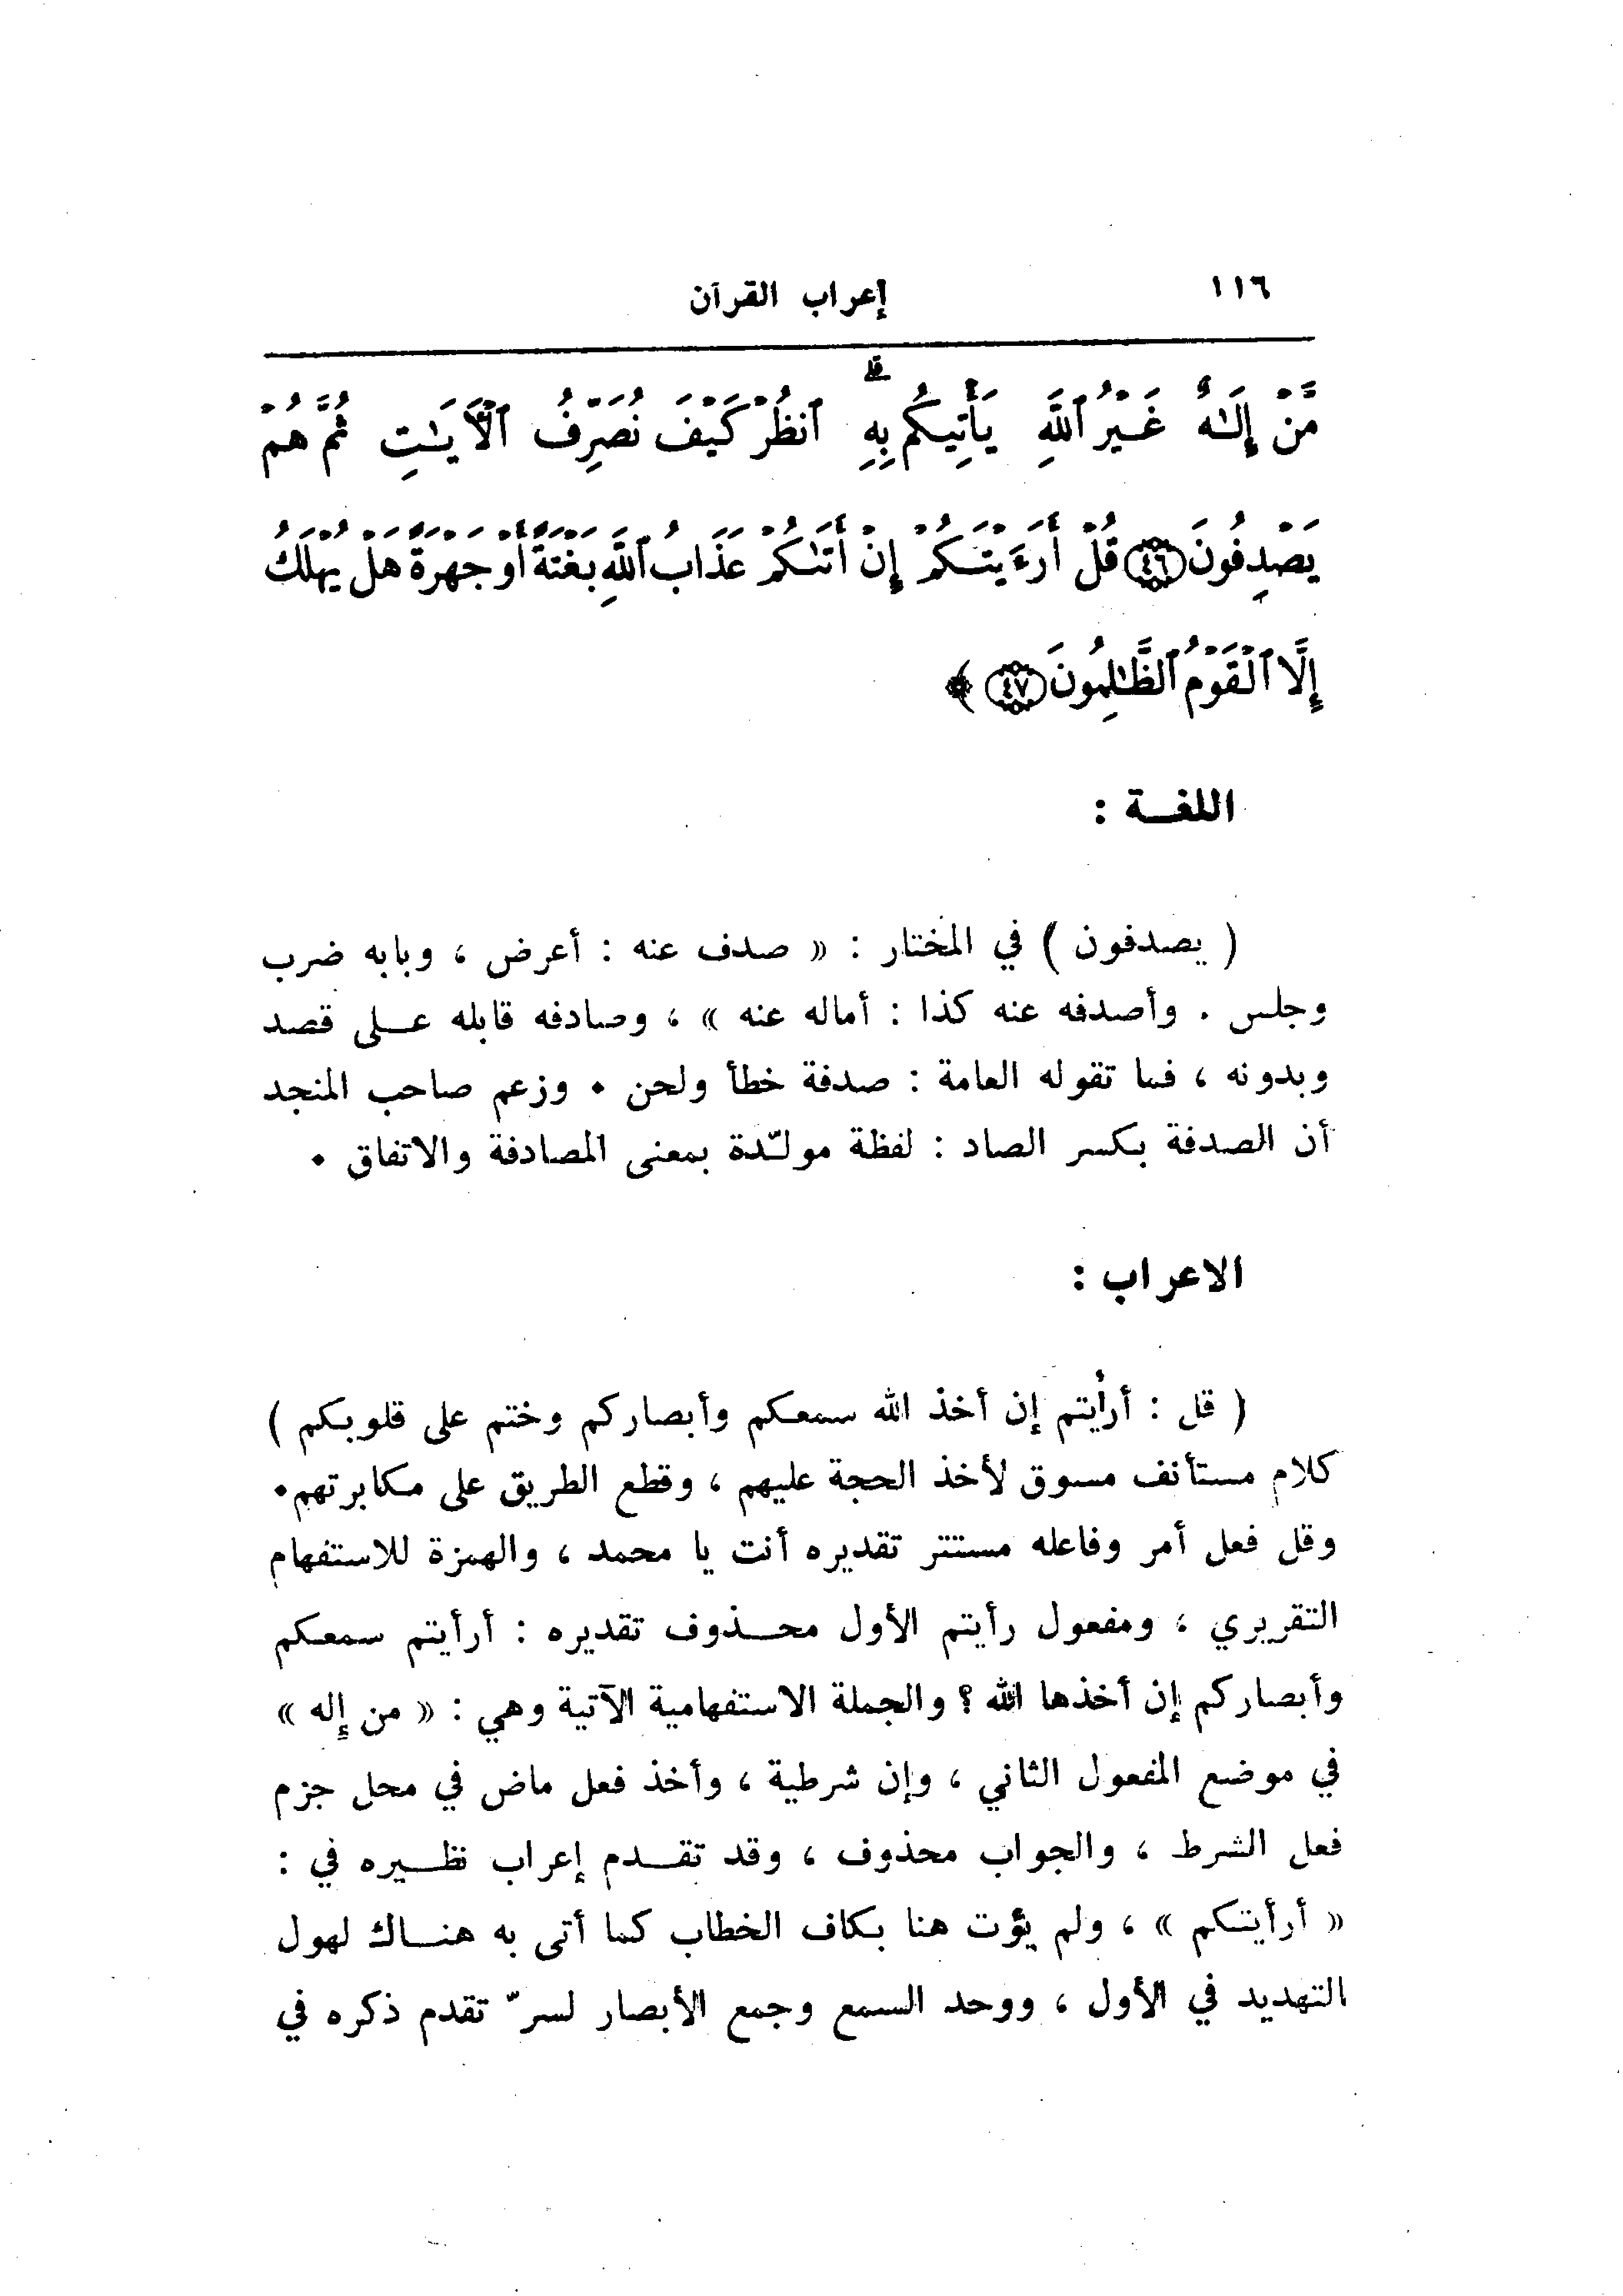 ١١٦ إعراب القرآن
مَّنْ إِلَـٰهٌ غَيْرُ ٱللَّهِ يَأْتِيكُم بِهِ ۗ ٱنظُرْ كَيْفَ نُصَرِّفُ ٱلْأَيَـٰتِ ثُمَّ هُمْ
يَصْدِفُونَ ٤٦ قُلْ أَرَءَيْتَكُمْ إِنْ أَتَىٰكُمْ عَذَابُ ٱللَّهِ بَغْتَةً أَوْ جَهْرَةً هَلْ يُهْلَكُ
إِلَّا ٱلْقَوْمُ ٱلظَّـٰلِمُونَ ٤٧ ﴾
اللغـة :
( يصدفون ) في المختار : « صدف عنه : أعرض ، وبابه ضرب
وجلس . وأصدفه عنه كذا : أماله عنه » ، وصادفه قابله عـلى قصد
وبدونه ، فما تقوله العامة : صدفة خطأ ولحن . وزعم صاحب المنجد
أن الصدفة بكسر الصاد : لفظة مولّدة بمعنى المصادفة والاتفاق .
الاعراب :
( قل : أرأيتم إن أخذ الله سمعكم وأبصاركم وختم على قلوبكم )
كلام مستأنف مسوق لأخذ الحجة عليهم ، وقطع الطريق على مكابرتهم .
وقل فعل أمر وفاعله مستتر تقديره أنت يا محمد ، والهمزة للاستفهام
التقريري ، ومفعول رأيتم الأول محـذوف تقديره : أرأيتم سمعكم
وأبصاركم إن أخذها الله ؟ والجملة الاستفهامية الآتية وهي : « من إله »
في موضع المفعول الثاني ، وإن شرطية ، وأخذ فعل ماض في محل جزم
فعل الشرط ، والجواب محذوف ، وقد تقـدم إعراب نظـيره في :
« أرأيتكم » ، ولم يؤت هنا بكاف الخطاب كما أتى به هنـاك لهول
التهديد في الأول ، ووحد السمع وجمع الأبصار لسرّ تقدم ذكره في